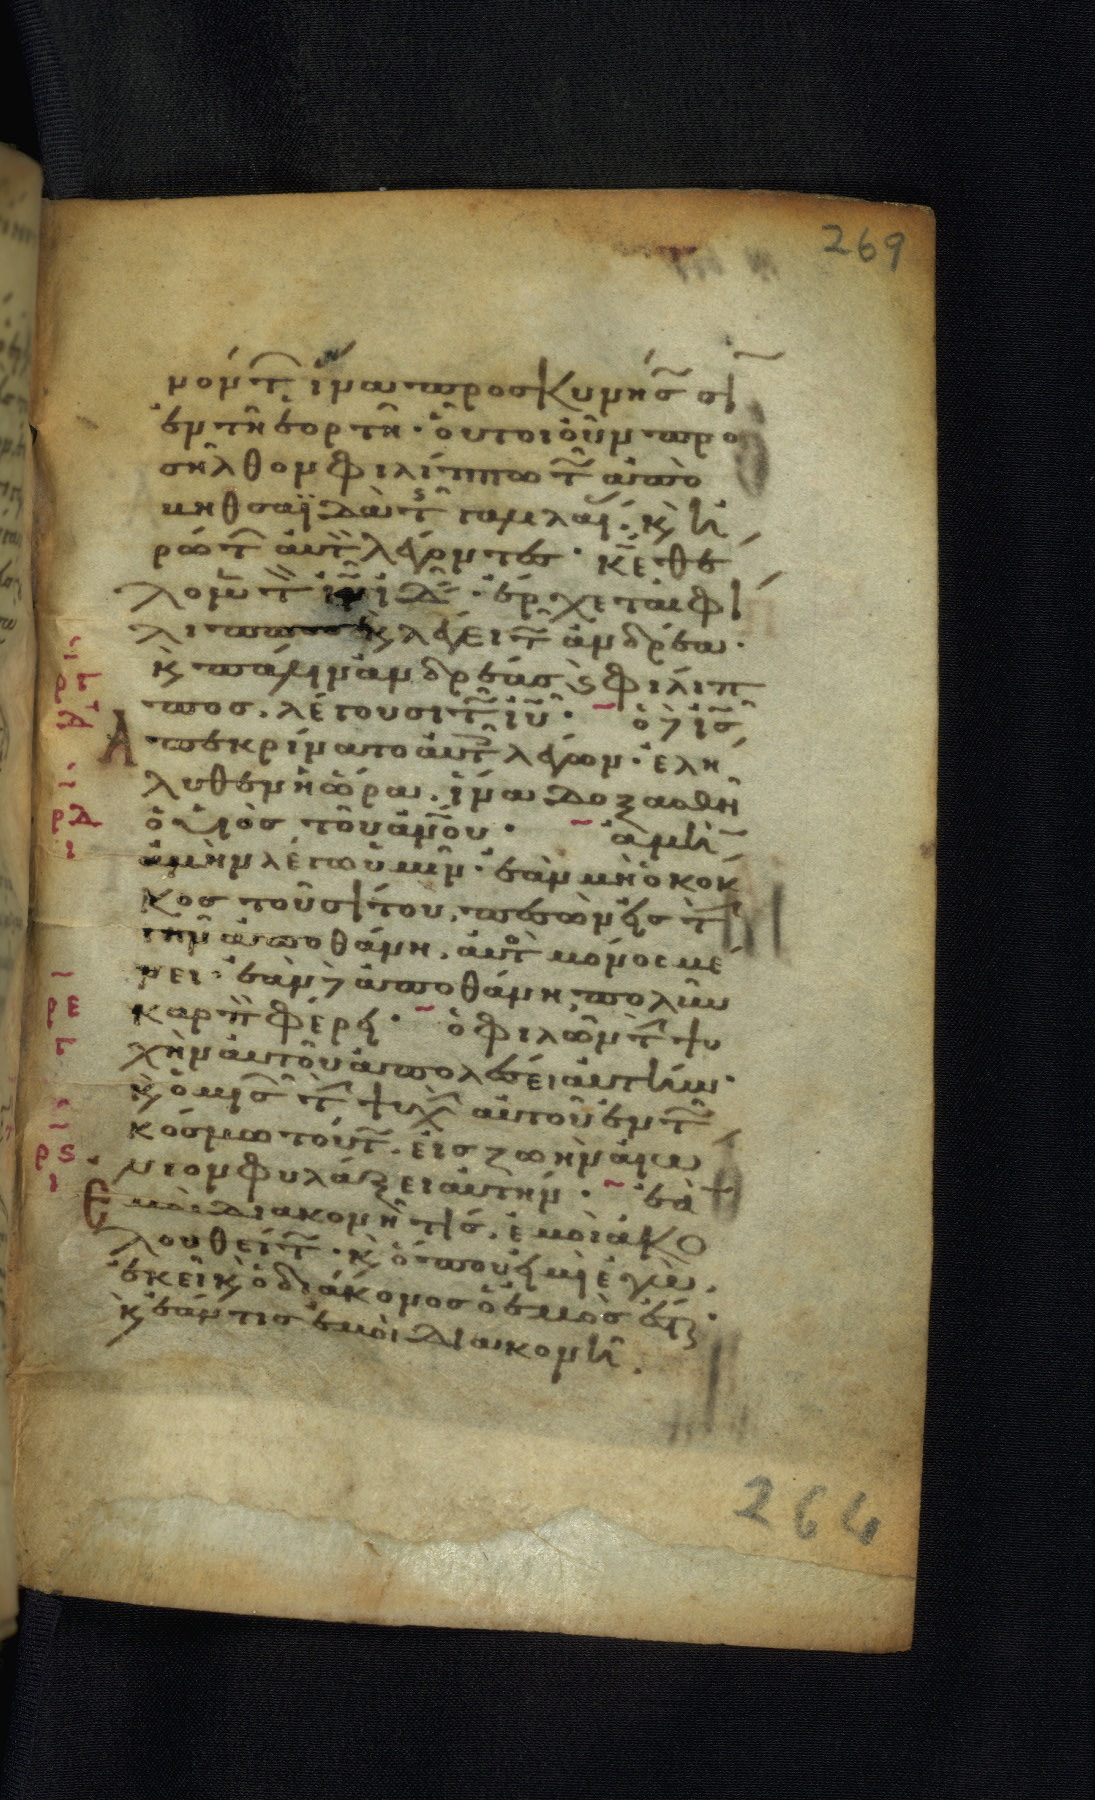 269
νόντ ἵνα προσκυνήσ σι
ἐν τῆ ἑορτῆ· οὗτοι οὖν προ
σῆλθον φιλίππω τ ἀπὸ
βηθσαϊδὰ τ γαλλαί. κ ἠ
ρώτ αὐτ λέγοντες· κε θέ
λομ τ ιν ἰδ· ἔρχεται φι
λιππος κ λέγει τ ἀνδρέα·
κ πάλιν ἀνδρέας κ φίλιπ
πος. λέγουσι τ ιυ· ὁ δ ισ
Ἀπεκρίνατο αὐτ λέγων· ἐλή
λυθεν ἡ ὥρα. ἵνα δοξασθῆ
ὁ υἱὸσ τοῦ ανου· ἀμὴ
ἀμὴν λέγω ὑμῖν· ἐὰν μὴ ὁ κοκ
κος τοῦ σίτου, πεσὼν εἰς τ
γῆν ἀποθάνη, αὐτ μόνος μέ
νει· ἐὰν δ ἀποθάνη, πολὺν
καρπ φέρει· ὁ φιλῶν τ ψυ
χὴν αὐτοῦ ἀπολέσει αὐτήν·
κ ὁ μισ τ ψυχ αὐτοῦ ἐν τ
κόσμω τούτ. εἰς ζωὴν αἰώ
νιον φυλάξει αὐτήν· ἐὰ
Ἐμοὶ διακονῆ τίσ, ἐμοὶ ἀκο
λουθείτ· κ ὅπου εἰμὶ ἐγὼ.
ἐκεῖ κ ὁ διάκονος ὁ ἐμὸς ἔσ·
κ ἐάν τις ἐμοὶ διακονῆ.
ργ
δ
ρδ
ι
ρε
γ
ρς
ι
264